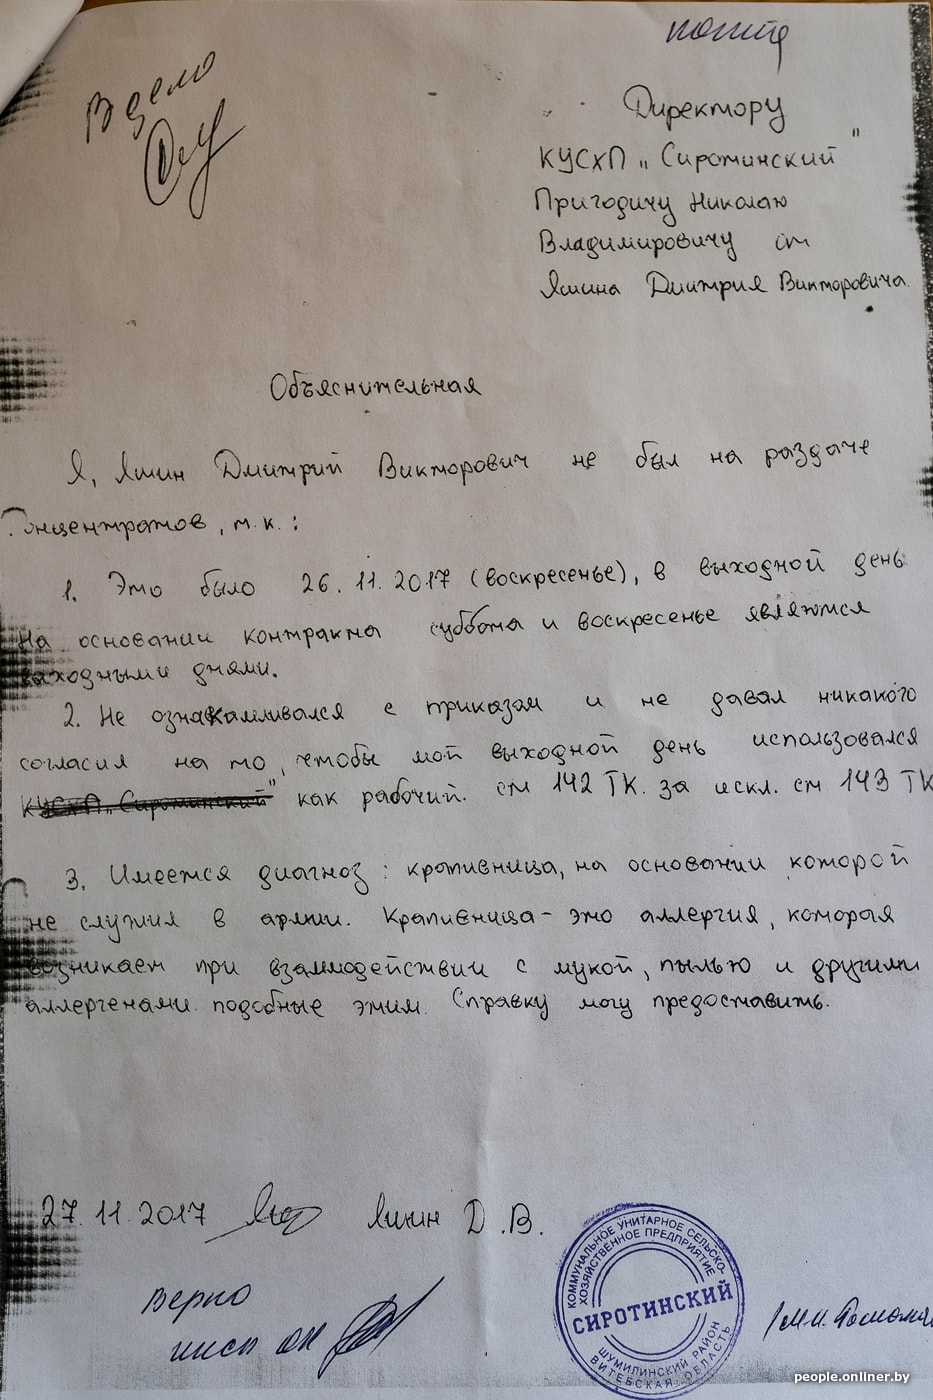 копия
В дело
Директору
КУСХП „Сиротинский"
Пригодичу Николаю
Владимировичу от
Яшина Дмитрия Викторовича.
Объяснительная
Я, Яшин Дмитрий Викторович не был на раздаче
концентратов, т.к.:
1. Это было 26.11.2017 (воскресенье), в выходной день
На основании контракта суббота и воскресенье являются
выходными днями.
2. Не ознакамливался с приказам и не давал никакого
согласия на то, чтобы мой выходной день использовался
КУСХП „Сиротинский" как рабочий. ст 142 ТК. за искл. ст 143 ТК
3. Имеется диагноз: крапивница, на основании которой
не служил в армии. Крапивница - это аллергия, которая
возникает при взаимодействии с мукой, пылью и другими
аллергенами подобные этим. Справку могу предоставить.
27.11.2017 Яшин Д.В.
Верно
инсп ок
КОММУНАЛЬНОЕ УНИТАРНОЕ СЕЛЬСКО-
ХОЗЯЙСТВЕННОЕ ПРЕДПРИЯТИЕ
СИРОТИНСКИЙ
ШУМИЛИНСКИЙ РАЙОН
ВИТЕБСКАЯ ОБЛАСТЬ
people.onliner.by